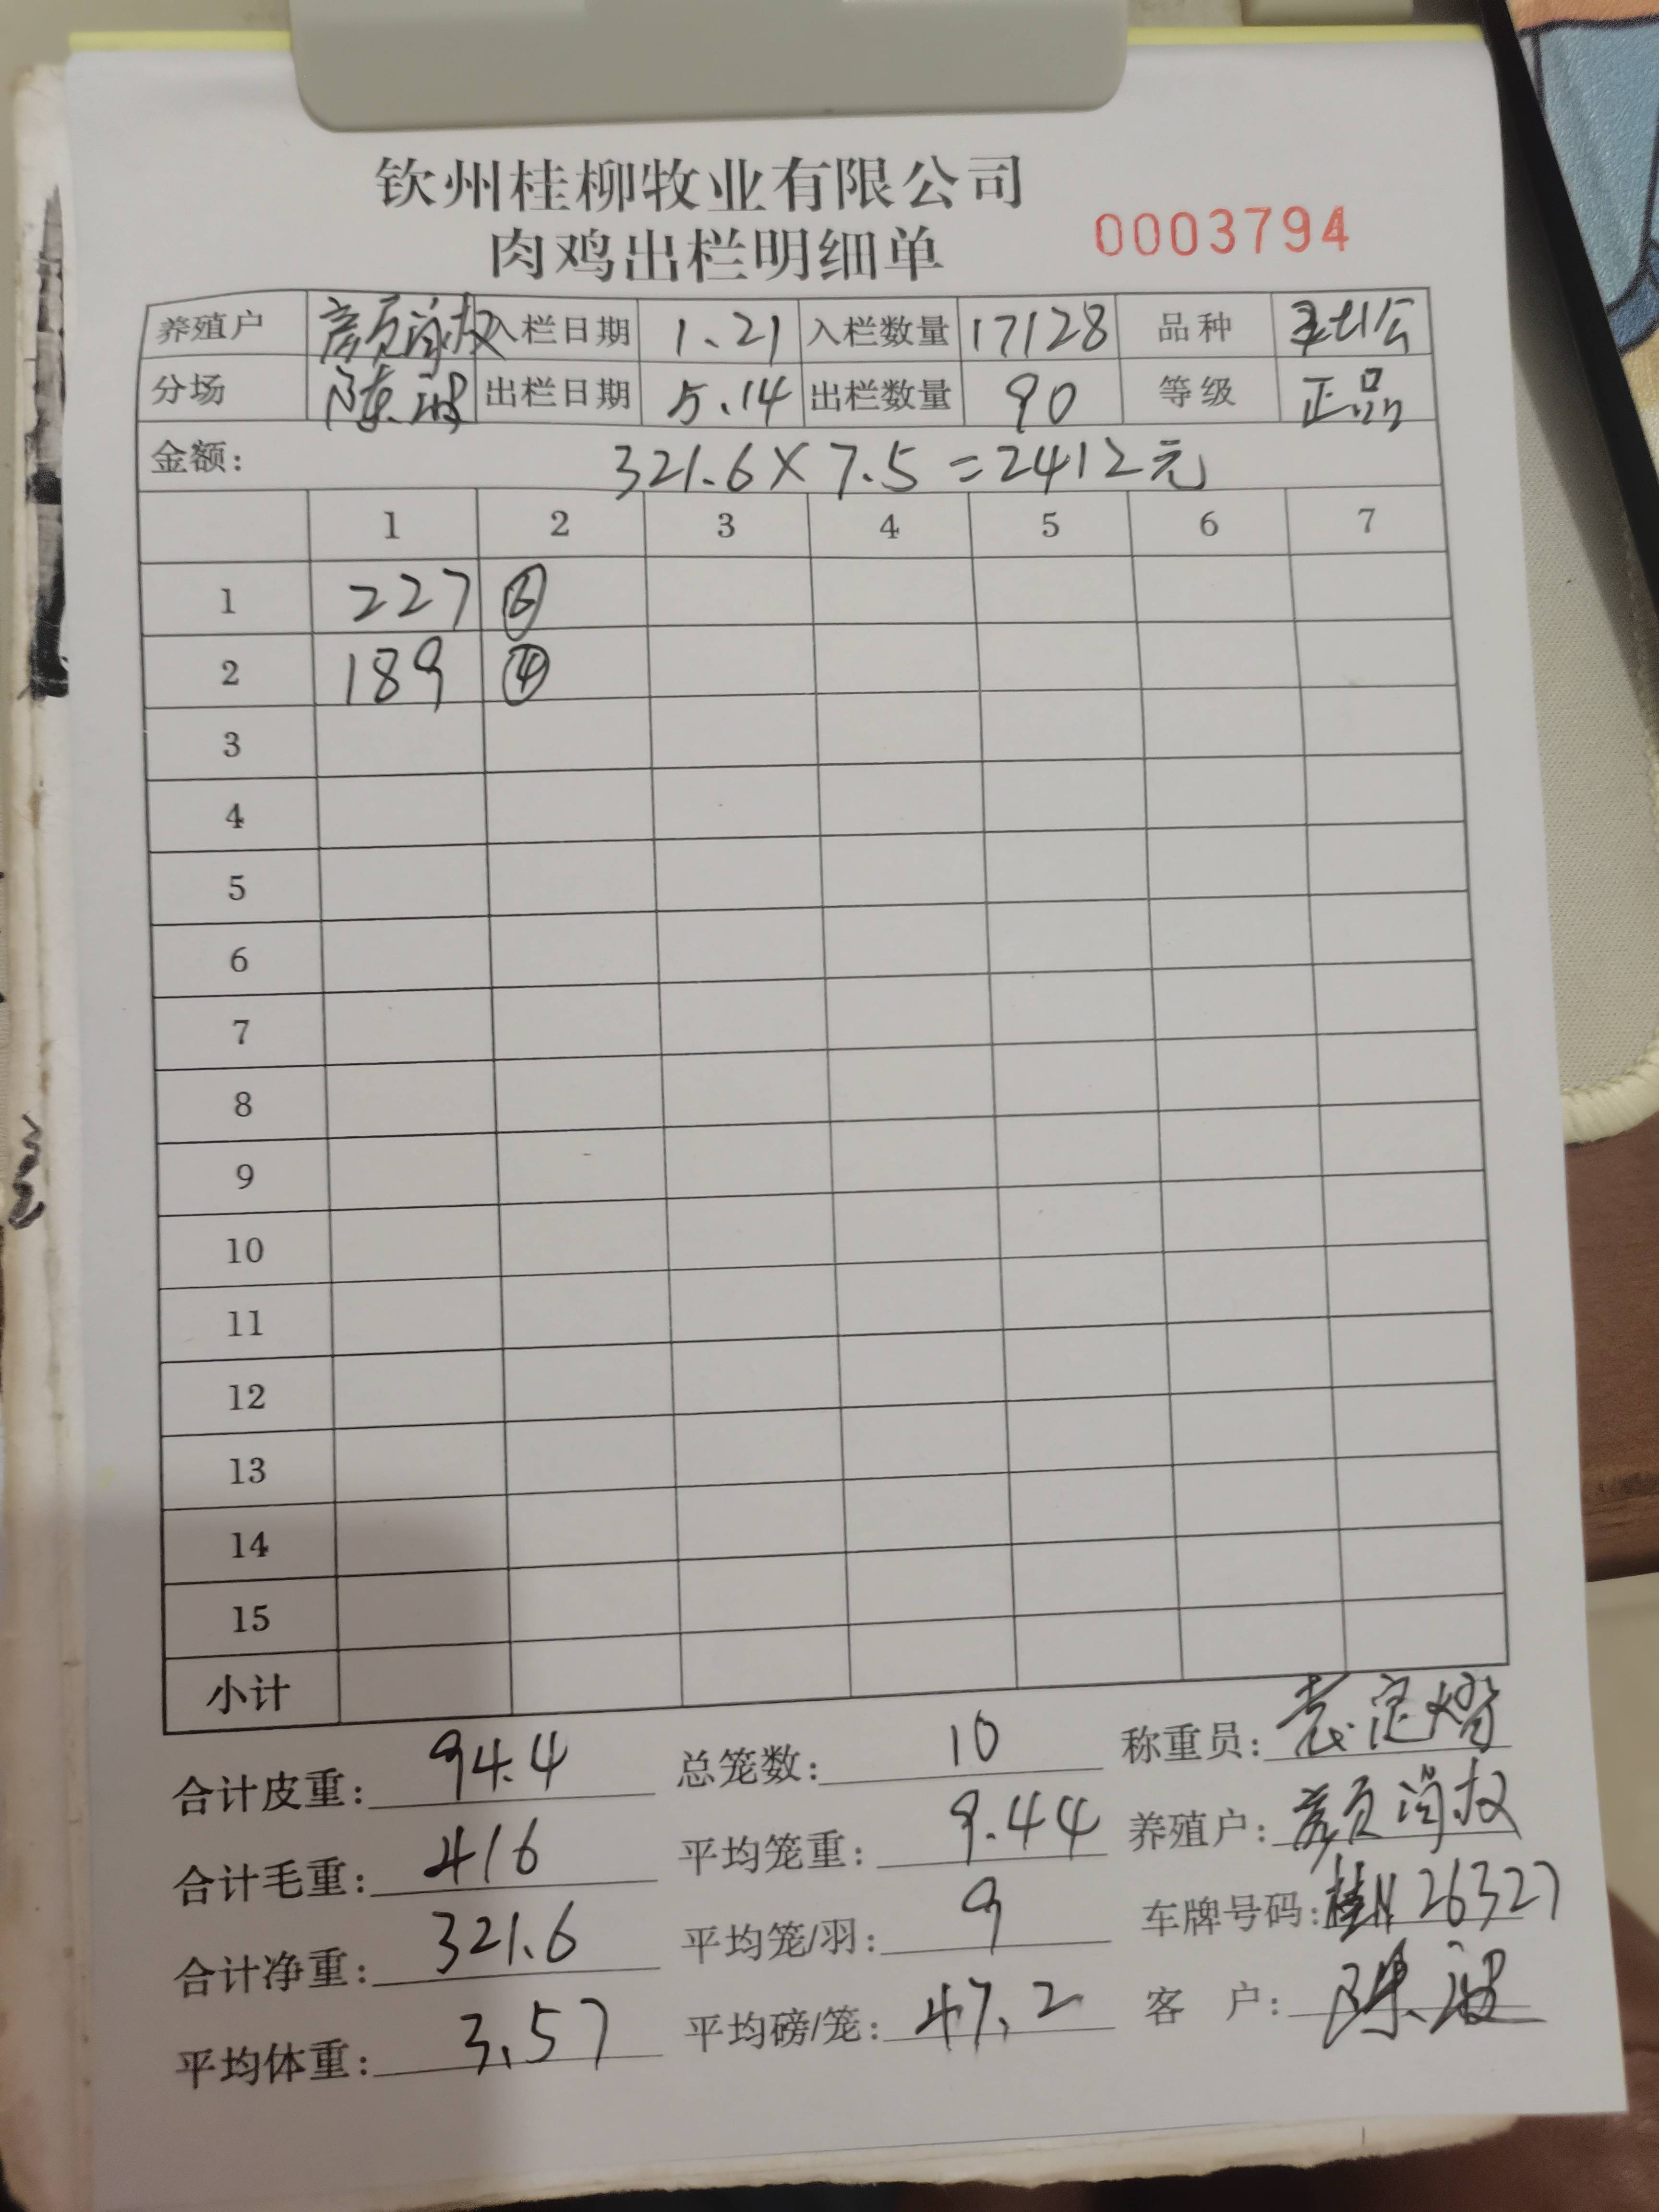 钦州桂柳牧业有限公司
肉鸡出栏明细单 0003794
养殖户 颜润权 入栏日期 1.21 入栏数量 17128 品种 土公
分场 陈波 出栏日期 5.14 出栏数量 90 等级 正品
金额: 321.6×7.5=2412元
1 2 3 4 5 6 7
1 227 ⑥
2 189 ④
3
4
5
6
7
8
9
10
11
12
13
14
15
小计
合计皮重: 94.4 总笼数: 10 称重员: 袁定
合计毛重: 416 平均笼重: 9.44 养殖户: 颜润权
合计净重: 321.6 平均笼/羽: 9 车牌号码: 桂N26327
平均体重: 3.57 平均磅/笼: 47.2 客户: 陈波